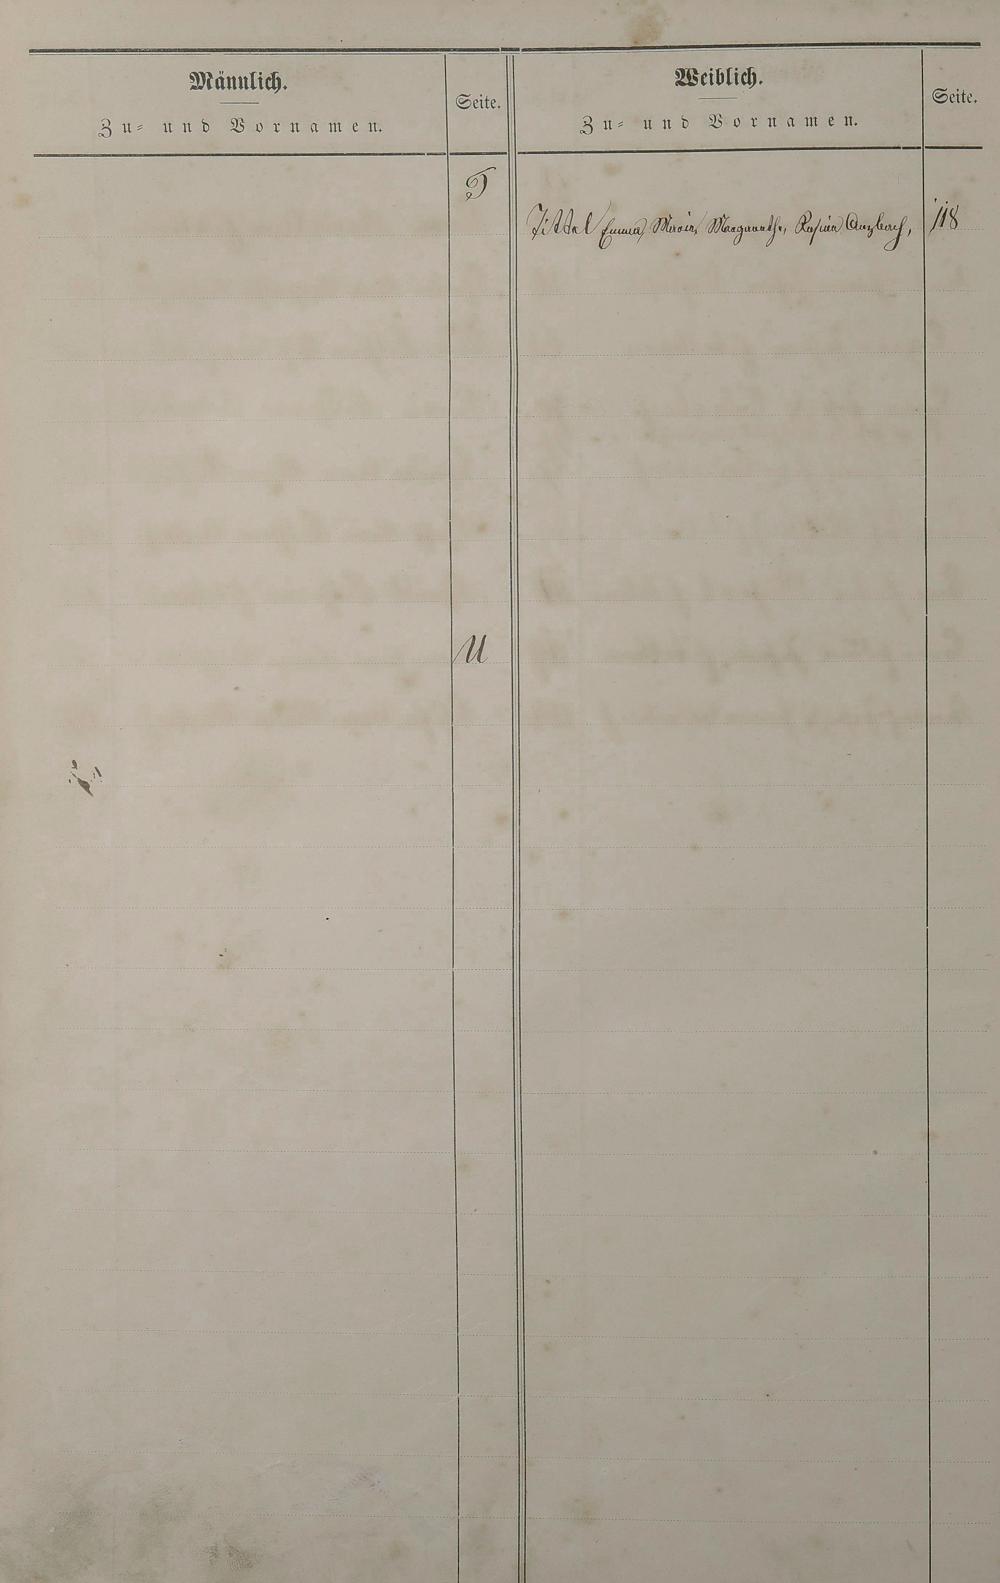 Männlich.
Zu- und Vornamen.
Seite.
Weiblich.
Zu- und Vornamen.
Seite.
T
Tittel Emma, Maria, Margarethe, 118
U